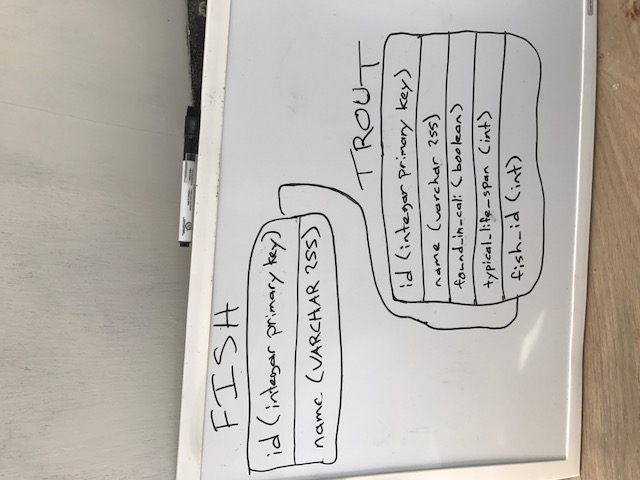 FISH
id (integar primary key)
name (VARCHAR 255)
TROUT
id (integar primary key)
name (varchar 255)
found_in_cali (boolean)
typical_life_span (int)
fish_id (int)